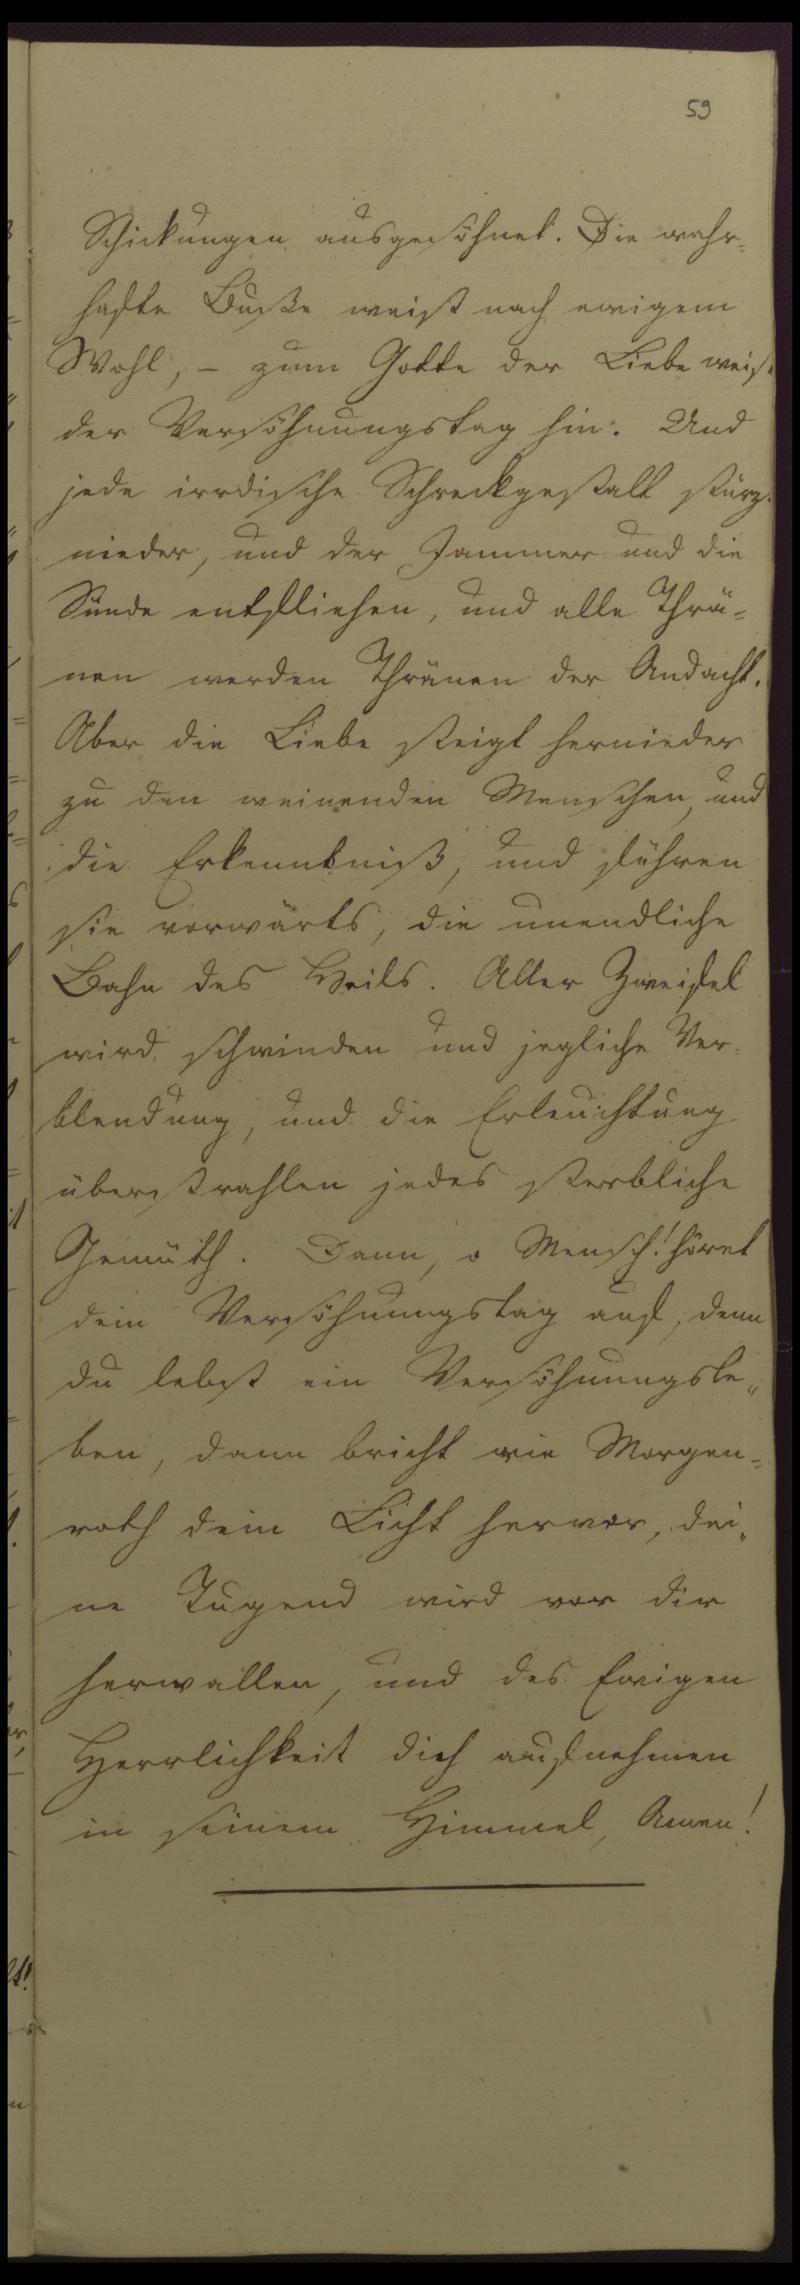 59
Schickungen ausgesöhnet. Die wahr=
hafte Buße weist nach ewigem
Wohl, – zum Gotte der Liebe weis
der Versöhnungstag hin. Und
jede irrdische Schreckgestalt stürz
nieder, und der Jammer und die
Sünde entfliehen, und alle Thrä=
nen werden Thränen der Andacht.
Aber die Liebe steigt hernieder
zu den weinenden Menschen, und
die Erkenntniß, und führen
sie vorwärts, die unendliche
Bahn des Heils. Aller Zweifel
wird schwinden und jegliche Ver=
blendung, und die Erleuchtung
überstrahlen jedes sterbliche
Gemüth. Dann, o Mensch! höret
dein Versöhnungstag auf, denn
du lebst ein Versöhnungsle„
ben, dann bricht wie Morgen=
roth dein Licht hervor, dei„
ne Tugend wird vor dir
herwallen, und des Ewigen
Herrlichkeit dich aufnehmen
in seinem Himmel, Amen!